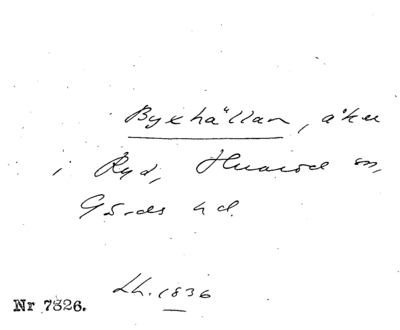 Byxhällan, åker
i Ryd, Huaröd sn,
Gärds hd.
Lh. 1836
Nr 7826.